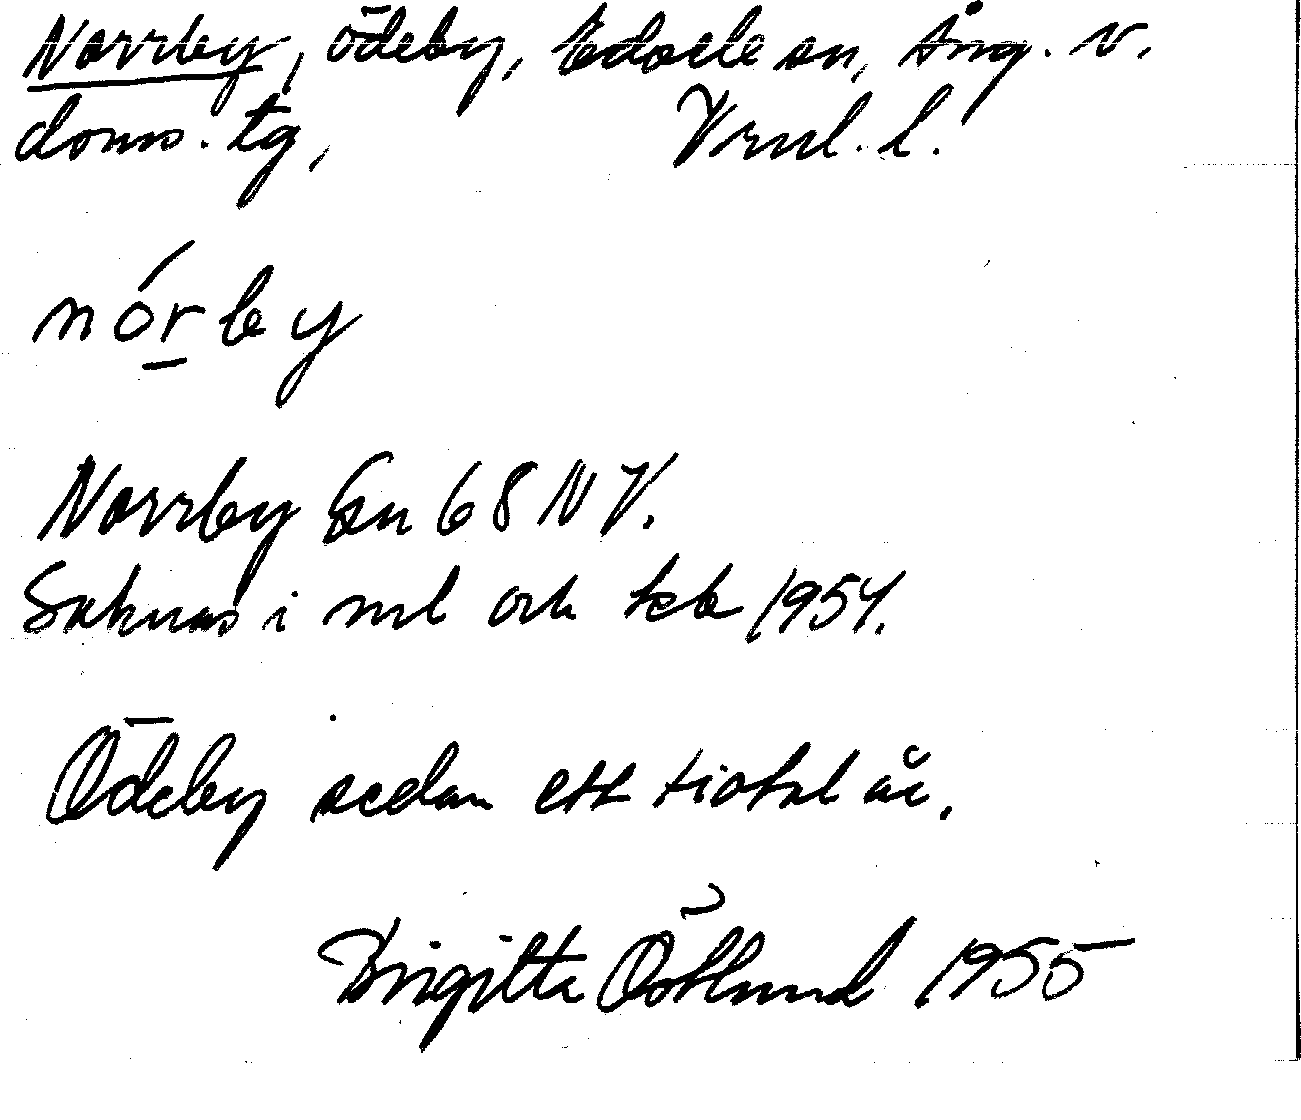 Norrby, ödeby, Edsele sn, Ång. v.
doms. tg, Vrnl. l.
nórby
Norrby En 68 NV.
Saknas i nrl och tck 1954.
Ödeby sedan ett tiotal år.
Birgitta Östlund 1955